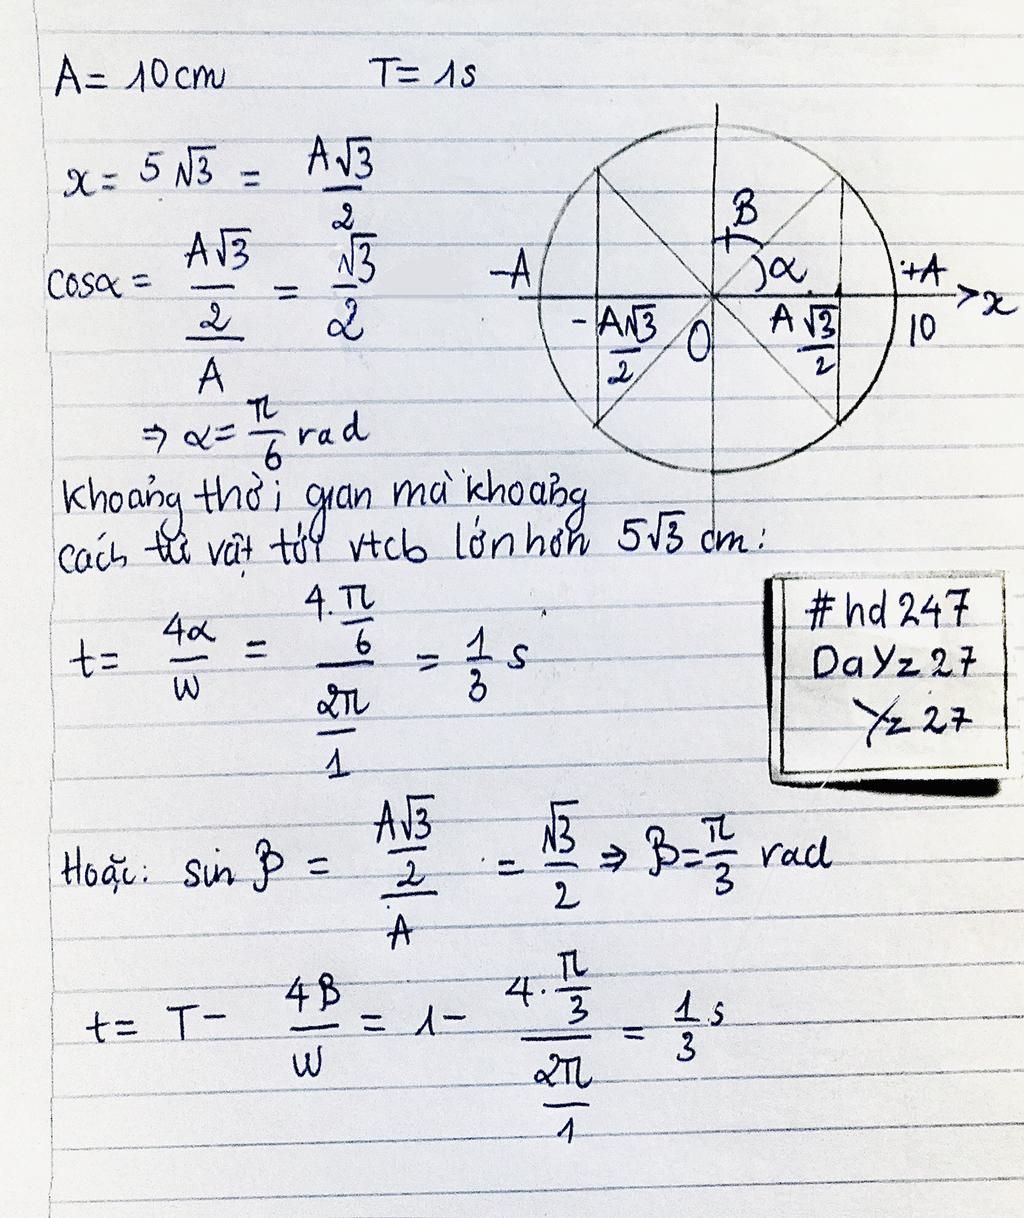 A= 10cm T= 1s
x= 5√3 = A√3/2
cosα = (A√3/2)/A = √3/2
⇒ α= π/6 rad
B
α
-A
+A
x
-A√3/2
O
A√3/2
10
Khoảng thời gian mà khoảng
cách từ vật tới vtcb lớn hơn 5√3 cm:
t= 4α/w = (4.π/6)/(2π/1) = 1/3 s
#hd247
DaYz27
Yz27
Hoặc: sin β = (A√3/2)/A = √3/2 ⇒ β= π/3 rad
t= T- 4β/w = 1- (4.π/3)/(2π/1) = 1/3 s